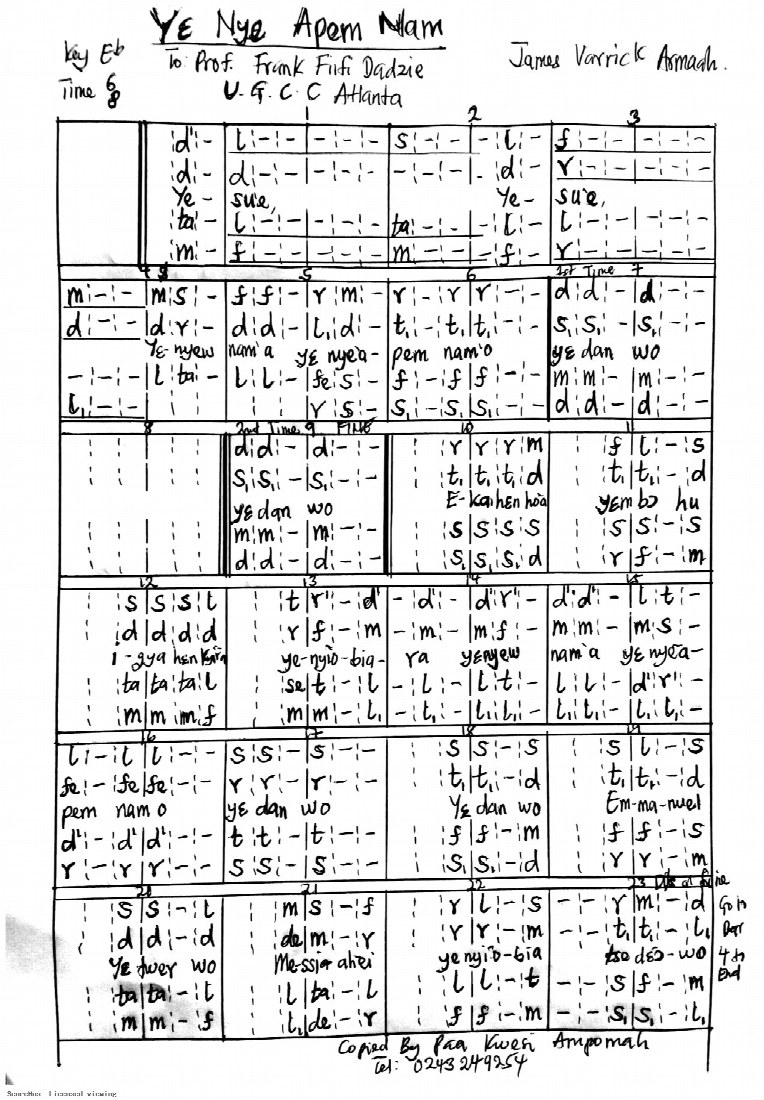 Yɛ Nye Apem Nam
Key Eb
To: Prof. Frank Fiifi Dadzie
James Varrick Armaah.
Time 6/8
U. G. C. C Atlanta
1 2 3
|d' - l - - - - - s - - - l - f - - - - -
|d - d - - - - - - - - - d - r - - - - -
Ye - sue, Ye - sue,
ta - l - - - - - ta - - - l - l - - - - -
m - f - - - - - m - - - f - r - - - - -
4 5 6 1st Time 7
m - - m s - f f - r m - r - r r - - d d - d - -
d - - d r - d d - l, d - t, - t, t, - - s, s, - s, - -
Yɛ-nyew nam'a yɛ nyea- pem nam'o yɛ dan wo
- - - l ta - l l - fe s - f - f f - - m m - m - -
l, - - r s - s, - s, s, - - d d - d - -
8 2nd Time 9 FINE 10 11
d d - d - - r r r m f l - s
s, s, - s, - - t, t, t, d t, t, - d
yɛ dan wo E-kai hɛn hoa yɛm bɔ hu
m m - m - - s s s s s s - s
d d - d - - s, s, s, d r f - m
12 13 14 15
s s s l t r' - d' - d' - d' r' - d' d' - l t -
d d d d r f - m - m - m f - m m - m s -
yɛ-nyiɔ-bia- ra yɛnyew nam'a yɛ nyɛa-
ta ta ta l se t - l - l - l t - l l - d' r' -
m m m f m m - l, - t, - l, l, - l, l, - l, - -
16 17 18 19
l - l l - - s s - s - - s s - s s l - s
fe - fe fe - - r r - r - - t, t, - d t, t, - d
pem nam o yɛ dan wo Yɛ dan wo Em-ma-nuel
d' - d' d' - - t t - t - - f f - m f f - s
r - r r - - s s - s - - s, s, - d r r - m
20 21 22 23
s s - l m s - f r l - s - - r m - d
d d - d de m - r r r - m - - t, t, - l,
Yɛ twer wo Messia ahei yɛ nyiɔ-bia
ta ta - l l ta - l l l - t - - s f - m
m m - f t, de - r f f - m - - s, s, - l,
Go to
Bar
4 to
End
Copied By Paa Kwesi Ampomah
Tel: 0243249254
ScoreHoc Licensed viewing